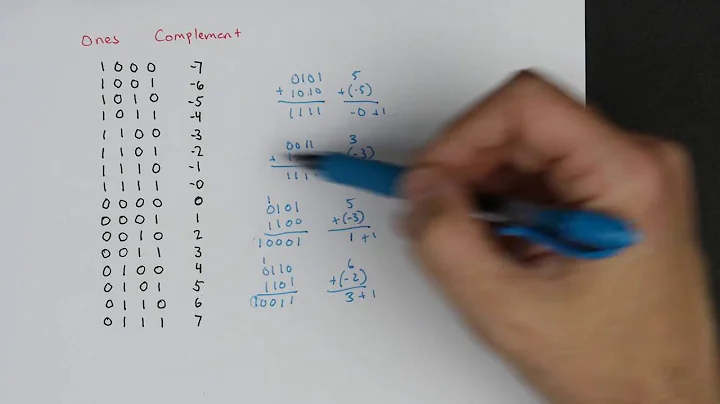 Ones Complement
1000 -7
1001 -6
1010 -5
1011 -4
1100 -3
1101 -2
1110 -1
1111 -0
0000 0
0001 1
0010 2
0011 3
0100 4
0101 5
0110 6
0111 7
0101 5
+ 1010 +(-5)
1111 -0+1
0011 3
+ 1 (-3)
111
1
0101 5
1100 +(-3)
10001 1+1
1
0110 6
1101 +(-2)
10011 3+1